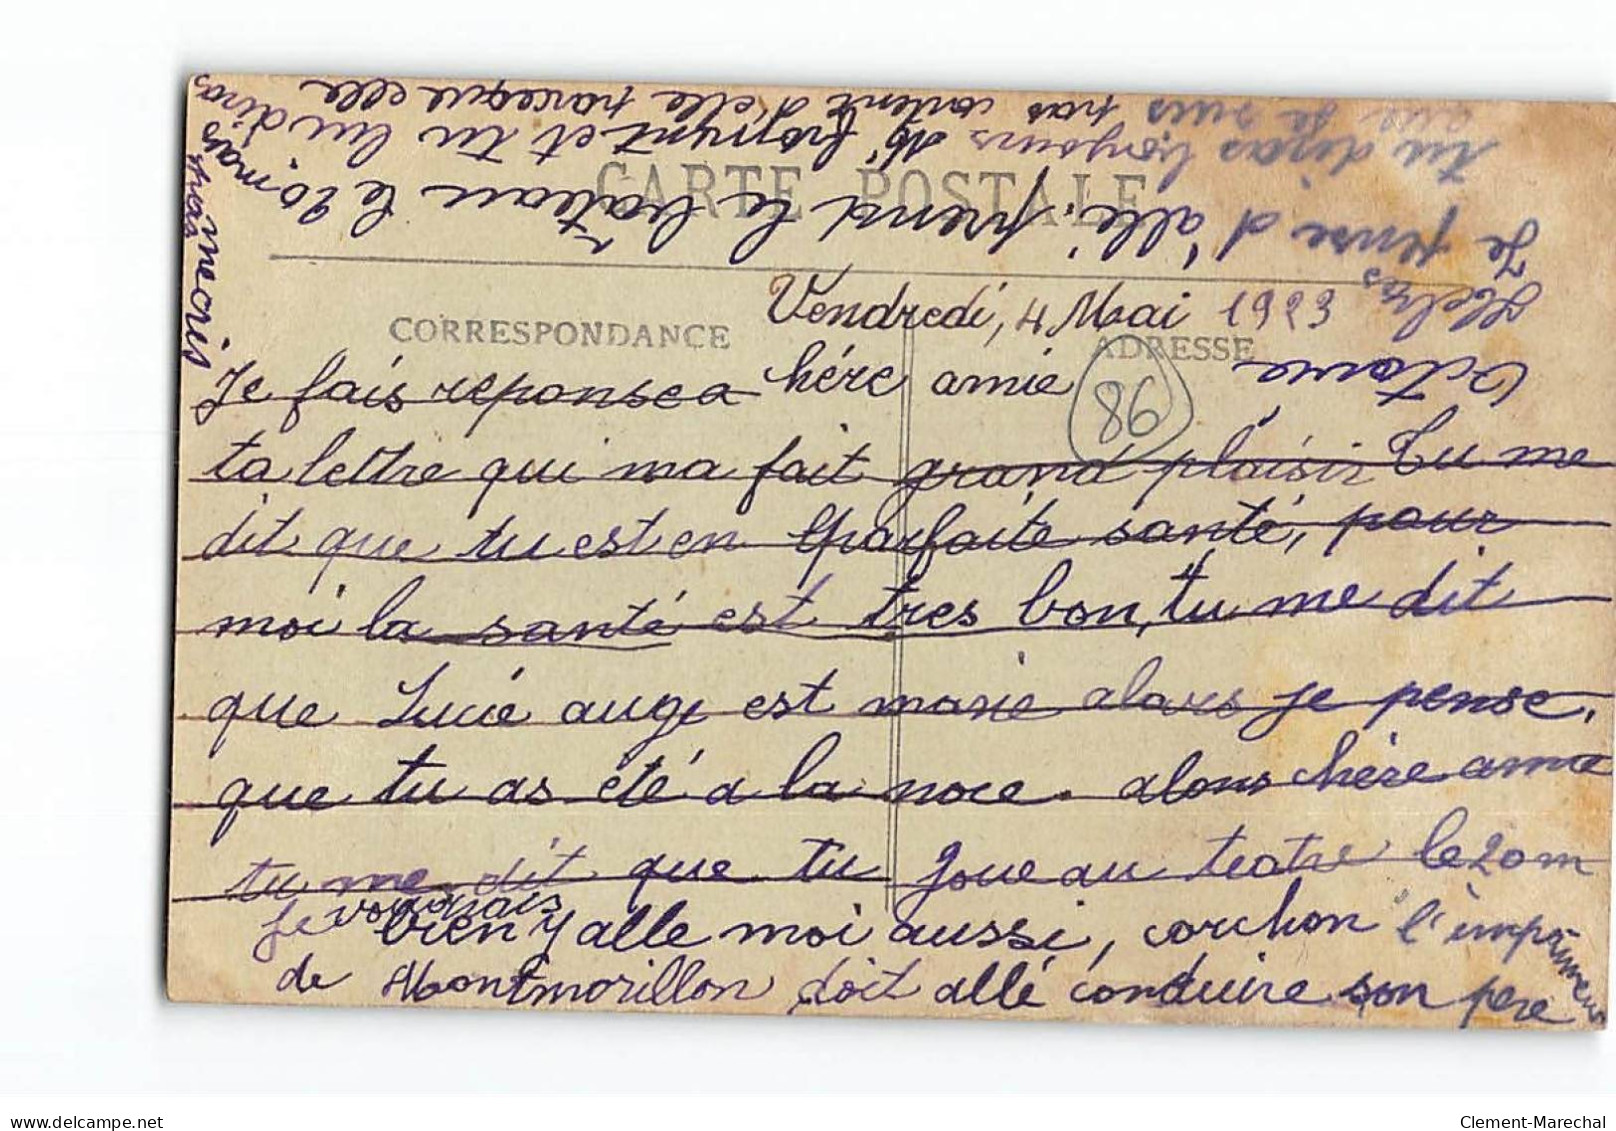 Vendredi, 4 Mai 1923
CARTE POSTALE
CORRESPONDANCE
ADRESSE
86
hére amie
Je fais reponse a
ta lettre qui ma fait grand plaisir Tu me
dit que tu est en parfaite santé, pour
moi la santé est tres bon, tu me dit
que Lucie auge est marie alors je pense,
que tu as été a la noce. alons chére amie
tu me dit que tu joue au teatre le 20 m
Je voudrais bien y alle moi aussi, corchon l'imprimeur
de Montmorillon doit allé conduire son pere
Je pense d'allé prend le bateau le 20 mars
tu diras toujours Me fromynt et tu lui diras
que je suis pas contente d'elle parceque elle
Octavie
delcampe.net
Clement-Marechal